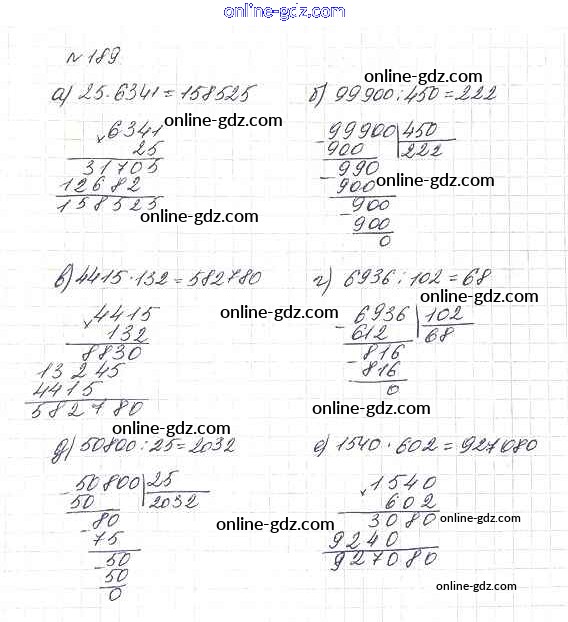 online-gdz.com
№ 189
а) 25·6341=158525
б) 99900:450=222
6341
25
31705
12682
158525
99900 450
900 222
990
900
900
900
0
в) 4415·132=582780
г) 6936:102=68
4415
132
8830
13245
4415
582780
6936 102
612 68
816
816
0
д) 50800:25=2032
е) 1540·602=927080
50800 25
50 2032
80
75
50
50
0
1540
602
3080
9240
927080
online-gdz.com
online-gdz.com
online-gdz.com
online-gdz.com
online-gdz.com
online-gdz.com
online-gdz.com
online-gdz.com
online-gdz.com
online-gdz.com
online-gdz.com
online-gdz.com
online-gdz.com
online-gdz.com